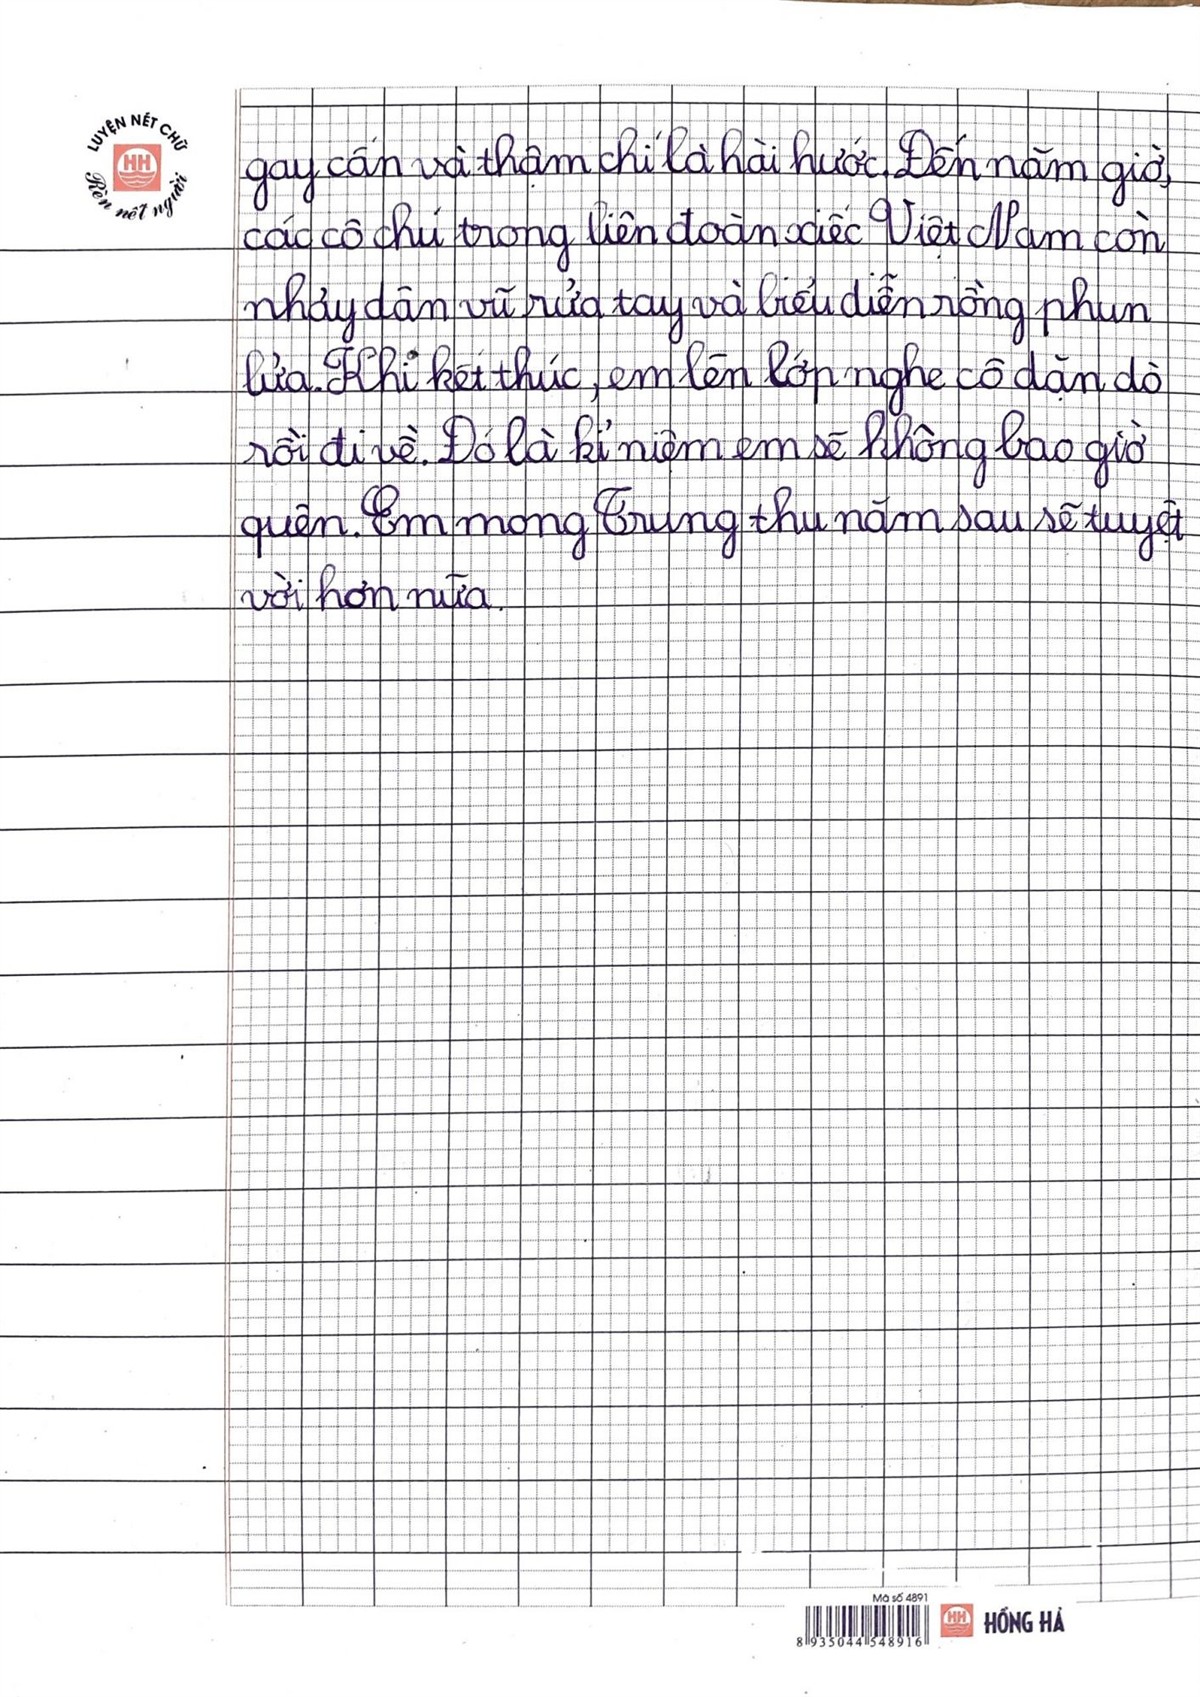 LUYỆN NÉT CHỮ
HH
Rèn nết người
gay cấn và thậm chí là hài hước. Đến năm giờ,
các cô chú trong liên đoàn xiếc Việt Nam còn
nhảy dân vũ rửa tay và biểu diễn rồng phun
lửa. Khi kết thúc, em lên lớp nghe cô dặn dò
rồi đi về. Đó là kỉ niệm em sẽ không bao giờ
quên. Em mong Trung thu năm sau sẽ tuyệt
vời hơn nữa.
Mã số 4891
8 935044 548916
HH HỒNG HÀ